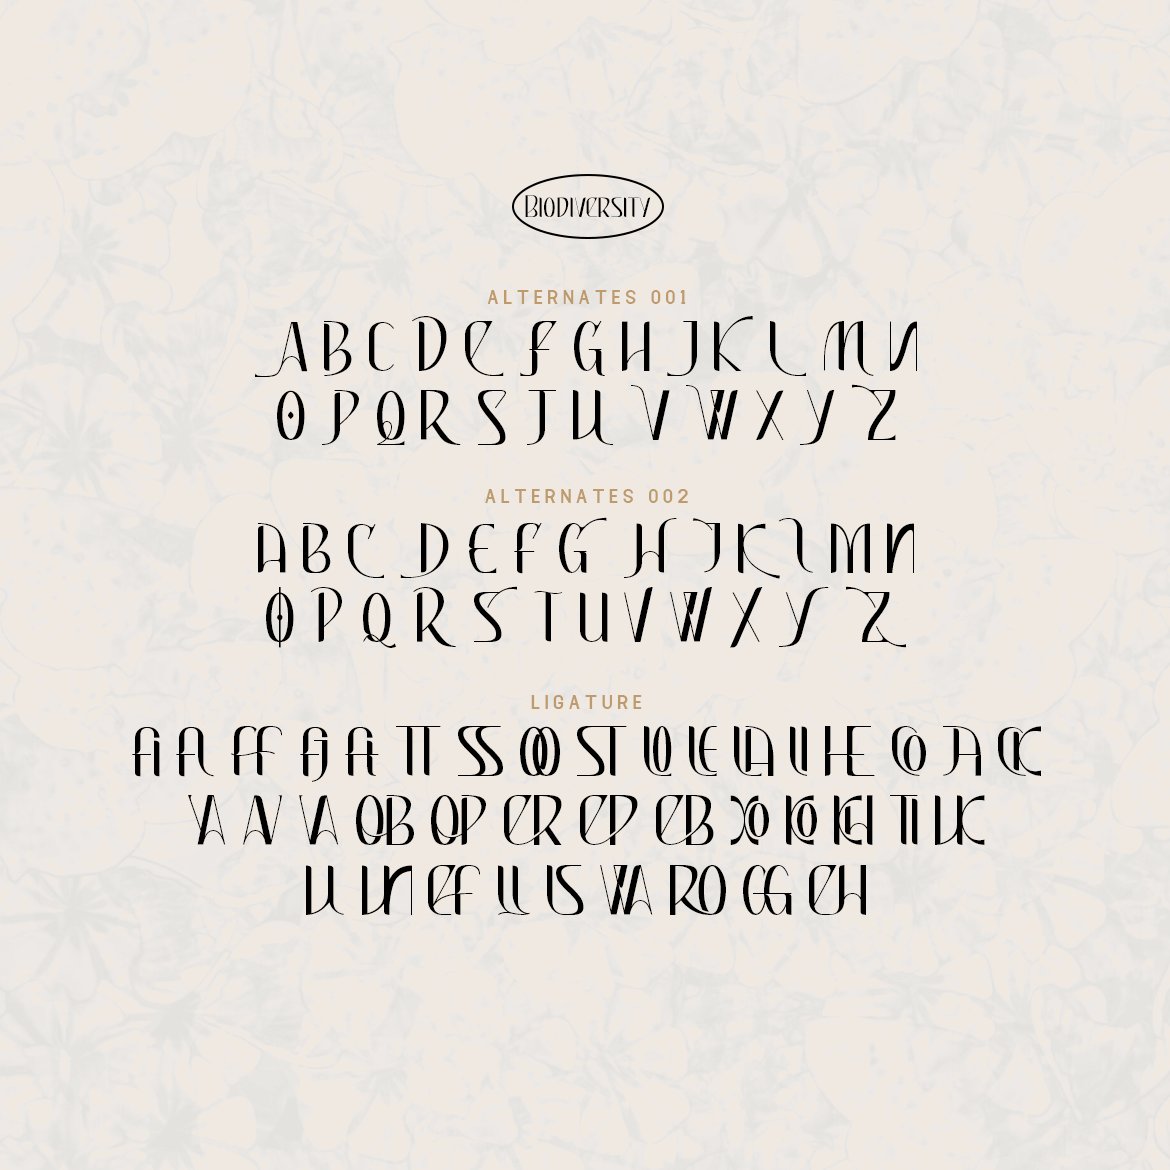 BIODIVERSITY
ALTERNATES 001
A B C D E F G H J K L M N
O P Q R S T U V W X Y Z
ALTERNATES 002
A B C D E F G H J K L M N
O P Q R S T U V W X Y Z
LIGATURE
FF TT SS OO ST LO LE LA HE CO CK
YA AV VA OB OP ER EP EB XO KO LK
EF WA RO GG